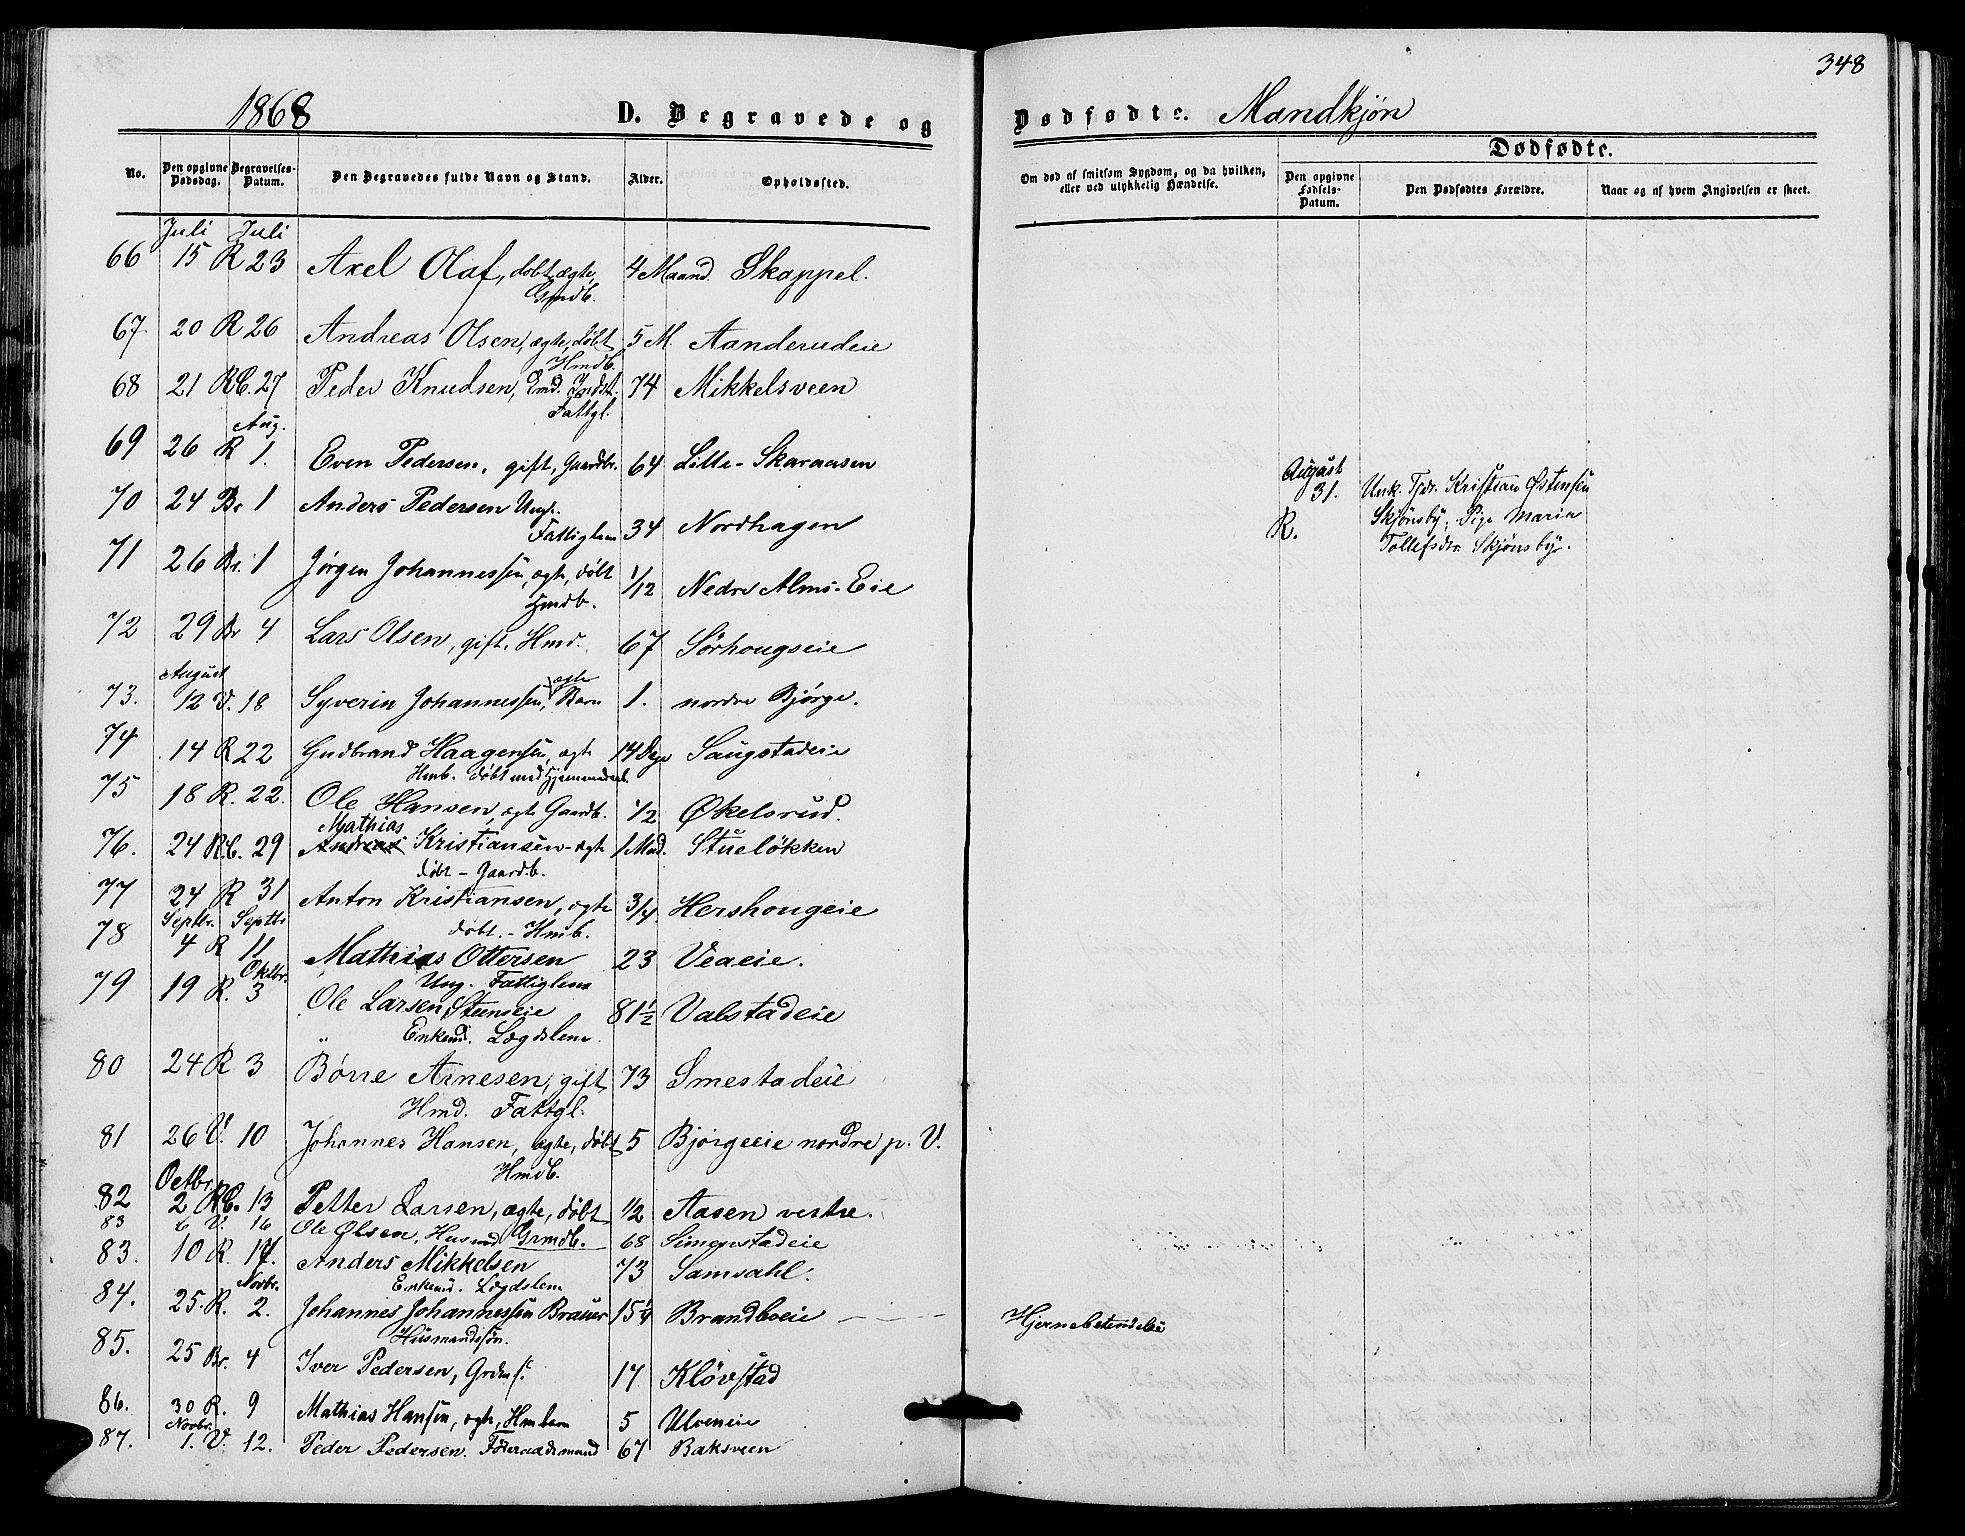 348
1868 D. Begravede og Dødfødte. Mandkjøn
Dødfødte.
No. Den opgivne Dødsdag. Begravelses-Datum. Den Begravedes fulde Navn og Stand. Alder. Opholdssted. Om død af smitsom Sygdom, og da hvilken, eller ved ulykkelig Hændelse. Den opgivne Fødsels-Datum. Den Dødfødtes Forældre. Naar og af hvem Angivelsen er skeet.
Juli Juli
66 15 R 23 Axel Olaf, døbt, ægte, 4 Maand. Skappel.
Gmdb.
67. 20 R 26 Andreas Olsen, ægte, døbt 5 M. Aanderudeie
Hmdb.
68 21 RC. 27 Peder Knudsen, Emd. Indst. 74 Mikkelsveen
Fattgl.
Aug.
69 26 R 1. Even Pedersen, gift, Gaardbr. 64 Lille-Skaraasen
70 24 Br 1 Anders Pedersen Ungk.
Fattiglem 34 Nordhagen
71 26 Br. 1 Jørgen Johannessen, ægte, døbt 1/12 Nedre Alms-Eie
Hmdb.
72 29 Br 4 Lars Olsen, gift, Hmd. 67 Sörhougseie
August
73. 12 V. 18 Syverin Johannessen, ægte Barn 1. nordre Bjørge.
74 14 R 22 Gudbrand Haagensen, ægte 14 Dage Saugstadeie
Hmb. døbt med Hjemmedaab.
75 18 R. 22. Ole Hansen, ægte Gaardb. 1/2 Økelsrud.
Mathias
76. 24 RC. 29 Andreas Kristiansen - ægte 1 Mnd. Stueløkken
døbt - Gaardb.
77 24 R 31 Anton Kristiansen, ægte 3/4 Hershougeie
døbt. - Hmb.
Septbr. Septbr
78 4 R 11 Mathias Ottersen 23 Veaeie.
Ung. Fattiglem
Oktbr.
79 19 R. 3 Ole Larsen Steenseie 81 1/2 Valstadeie
Enkemd. Lægdslem
80 24 R 3 Börre Arnesen, gift, 73 Smestadeie
Hmd. Fattgl.
81 26 V. 10 Johannes Hansen, ægte, døbt 5 Bjørgeeie nordre p. V.
Hmdb.
Octbr.
82 2 RC. 13 Petter Larsen, ægte, døbt 1/2 Aasen vestre.
Grmdb.
83 6 V. 16 Ole Olsen, Husmd 68 Simenstadeie
83. 10 R. 17. Anders Mikkelsen 73 Samdahl.
Enkemd. Lægdslem
Novbr.
84. 25. R. 2. Johannes Johannessen Brauer 15 1/4 Brandboeie Hjernebetendelse
Husmandssøn.
85. 25 Br. 4 Iver Pedersen, Grdm S. 17 Kløvstad
86. 30 R. 9 Mathias Hansen, ægte, Hmbarn 5 Ulveneie
Novbr.
87. 1. V. 12. Peder Pedersen. Föderaadsmand 67 Baksveen
August
31. Unk. Tjdr. Kristian Østensen
R. Skjønsby, Pige Maria
Tollefsdtr Skjønsby.